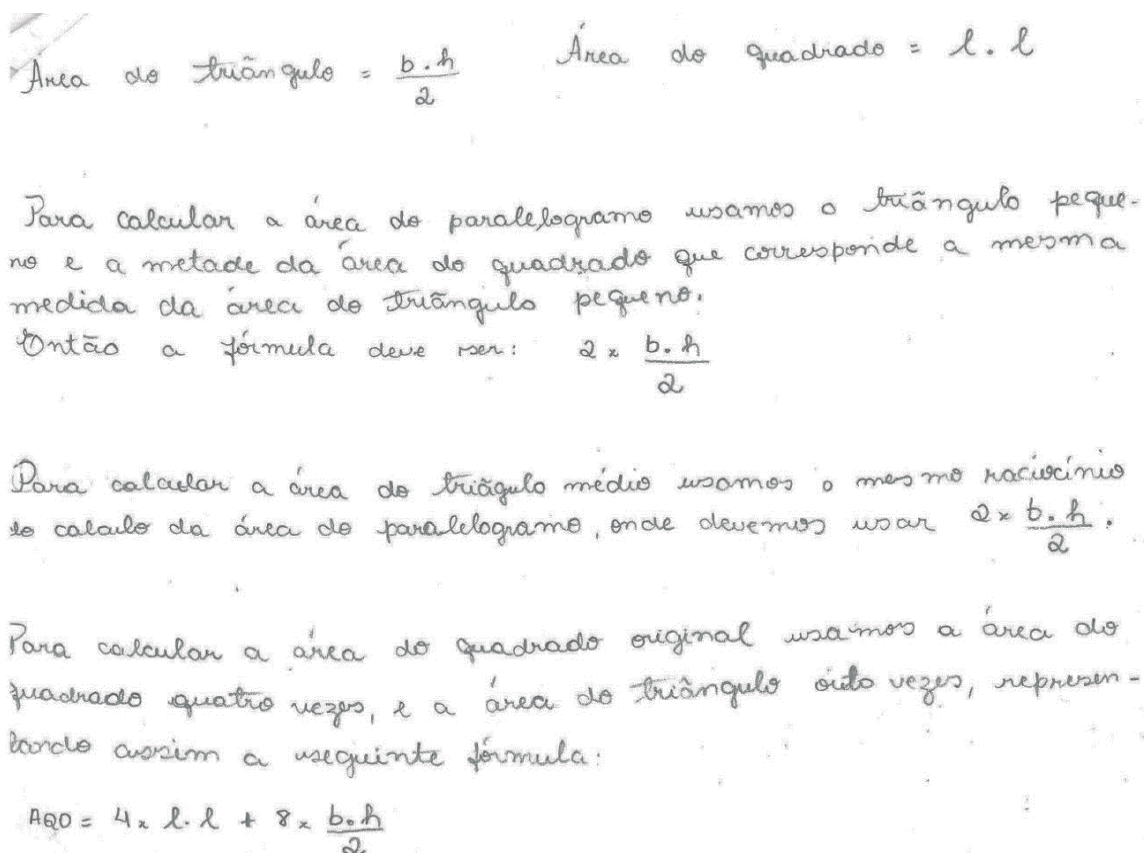 Área do triângulo = b.h/2    Área do quadrado = l.l
Para calcular a área do paralelogramo usamos o triângulo peque-
no e a metade da área do quadrado que corresponde a mesma
medida da área do triângulo pequeno.
Então a fórmula deve ser: 2 x b.h/2
Para calcular a área do triâgulo médio usamos o mesmo raciocínio
do calculo da área do paralelogramo, onde devemos usar 2 x b.h/2.
Para calcular a área do quadrado original usamos a área do
quadrado quatro vezes, e a área do triângulo oito vezes, represen-
tando assim a seguinte fórmula:
AQO = 4 x l.l + 8 x b.h/2